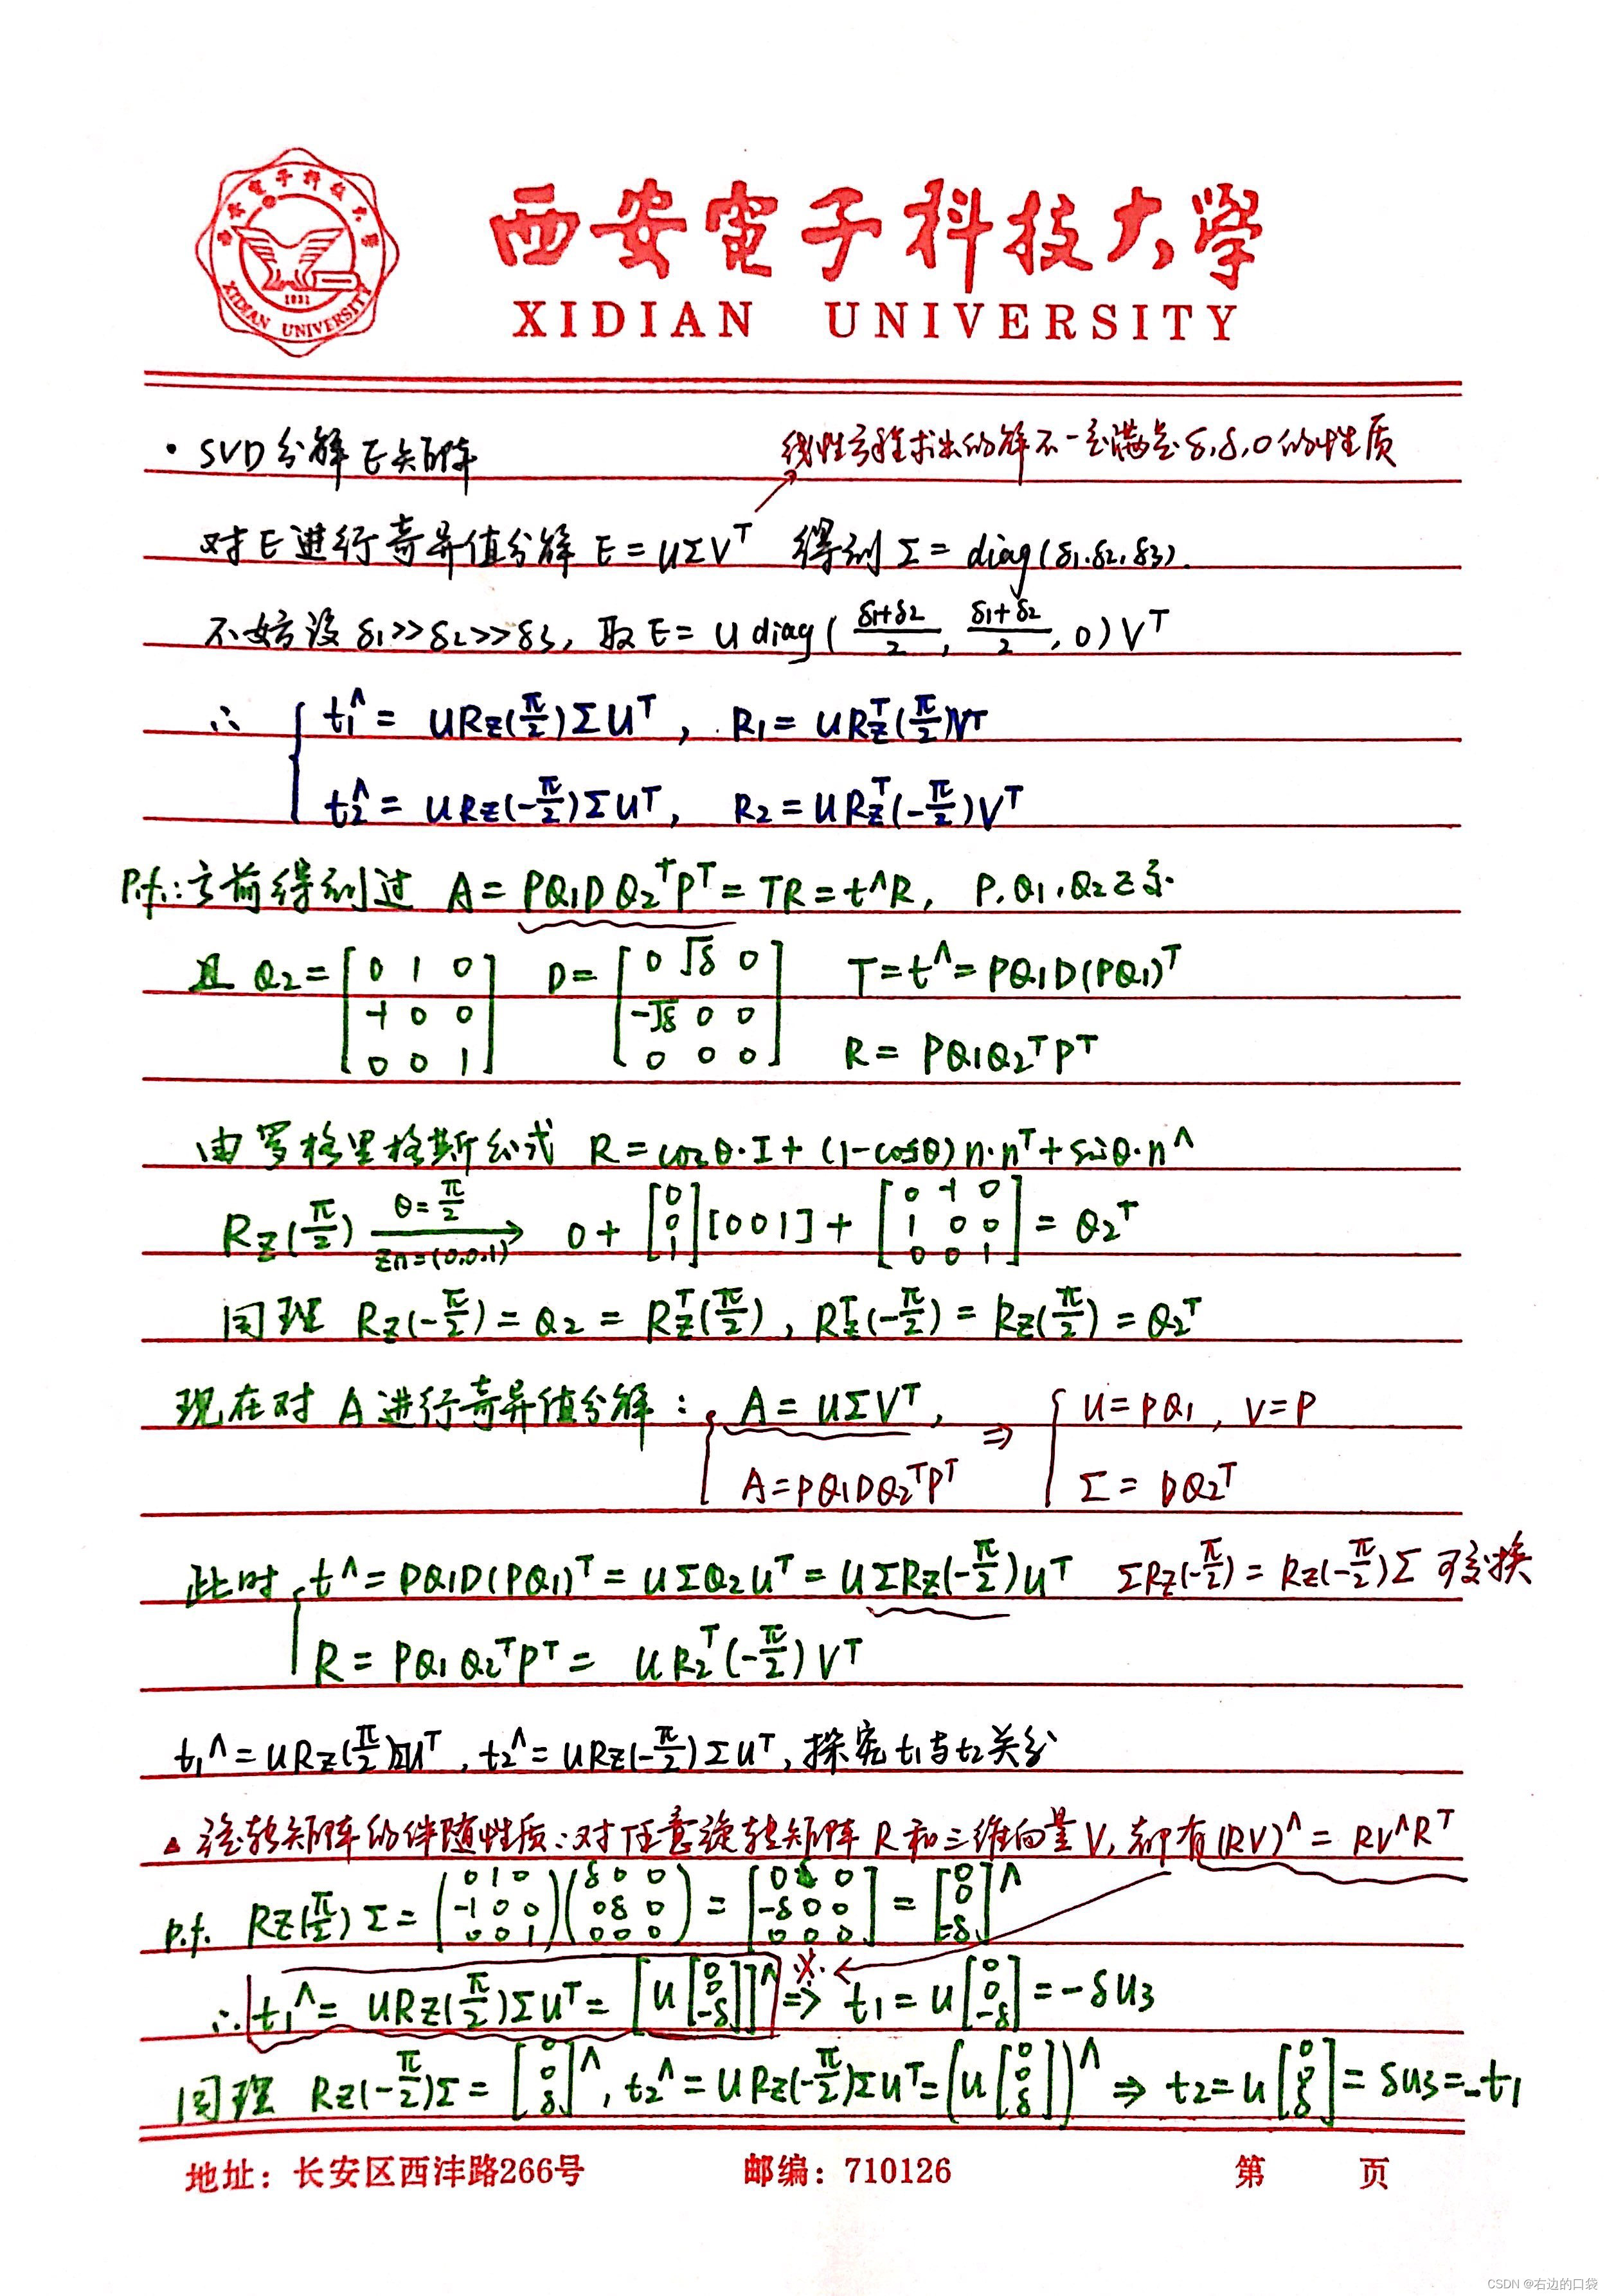 西安电子科技大学
XIDIAN UNIVERSITY
西安電子科技大學
XIDIAN UNIVERSITY
1931
· SVD分解E矩阵
线性方程求出的解不一定满足δ,δ,0的性质
对E进行奇异值分解 E=UΣVᵀ 得到Σ=diag(δ1,δ2,δ3).
不妨设 δ1>>δ2>>δ3, 取E=U diag(\frac{δ1+δ2}{2}, \frac{δ1+δ2}{2}, 0)Vᵀ
∴ { t1^=URz(\frac{π}{2})ΣUᵀ, R1=URzᵀ(\frac{π}{2})Vᵀ
t2^=URz(-\frac{π}{2})ΣUᵀ, R2=URzᵀ(-\frac{π}{2})Vᵀ
P.f.:之前得到过 A=PQ1DQ2ᵀPᵀ=TR=t^R, P,Q1,Q2正交.
且 Q2=[0 1 0; -1 0 0; 0 0 1] D=[0 √δ 0; -√δ 0 0; 0 0 0] T=t^=PQ1D(PQ1)ᵀ
R=PQ1Q2ᵀPᵀ
由罗格里格斯公式 R=cosθ·I+(1-cosθ)n·nᵀ+sinθ·n^
Rz(\frac{π}{2}) θ=\frac{π}{2} zn=(0,0,1) → 0+[0; 0; 1][0 0 1]+[0 -1 0; 1 0 0; 0 0 1]=Q2ᵀ
同理 Rz(-\frac{π}{2})=Q2=Rzᵀ(\frac{π}{2}), Rzᵀ(-\frac{π}{2})=Rz(\frac{π}{2})=Q2ᵀ
现在对A进行奇异值分解: { A=UΣVᵀ, ⇒ { U=PQ1, V=P
A=PQ1DQ2ᵀPᵀ Σ=DQ2ᵀ
此时 { t^=PQ1D(PQ1)ᵀ=UΣQ2Uᵀ=UΣRz(-\frac{π}{2})Uᵀ ΣRz(-\frac{π}{2})=Rz(-\frac{π}{2})Σ 可交换
R=PQ1Q2ᵀPᵀ=URzᵀ(-\frac{π}{2})Vᵀ
t1^=URz(\frac{π}{2})ΣUᵀ, t2^=URz(-\frac{π}{2})ΣUᵀ, 探究t1与t2关系
△ 旋转矩阵的伴随性质:对任意旋转矩阵R和三维向量V,都有(RV)^=RV^Rᵀ
P.f. Rz(\frac{π}{2})Σ=(0 1 0; -1 0 0; 0 0 1)(δ 0 0; 0 δ 0; 0 0 0)=[0 δ 0; -δ 0 0; 0 0 0]=[0; 0; -δ]^
∴ t1^=URz(\frac{π}{2})ΣUᵀ=[U[0; 0; -δ]]^ ※ ⇒ t1=U[0; 0; -δ]=-δU3
同理 Rz(-\frac{π}{2})Σ=[0; 0; δ]^, t2^=URz(-\frac{π}{2})ΣUᵀ=(U[0; 0; δ])^ ⇒ t2=U[0; 0; δ]=δU3=-t1
地址：长安区西沣路266号 邮编：710126 第 页
CSDN @右边的口袋